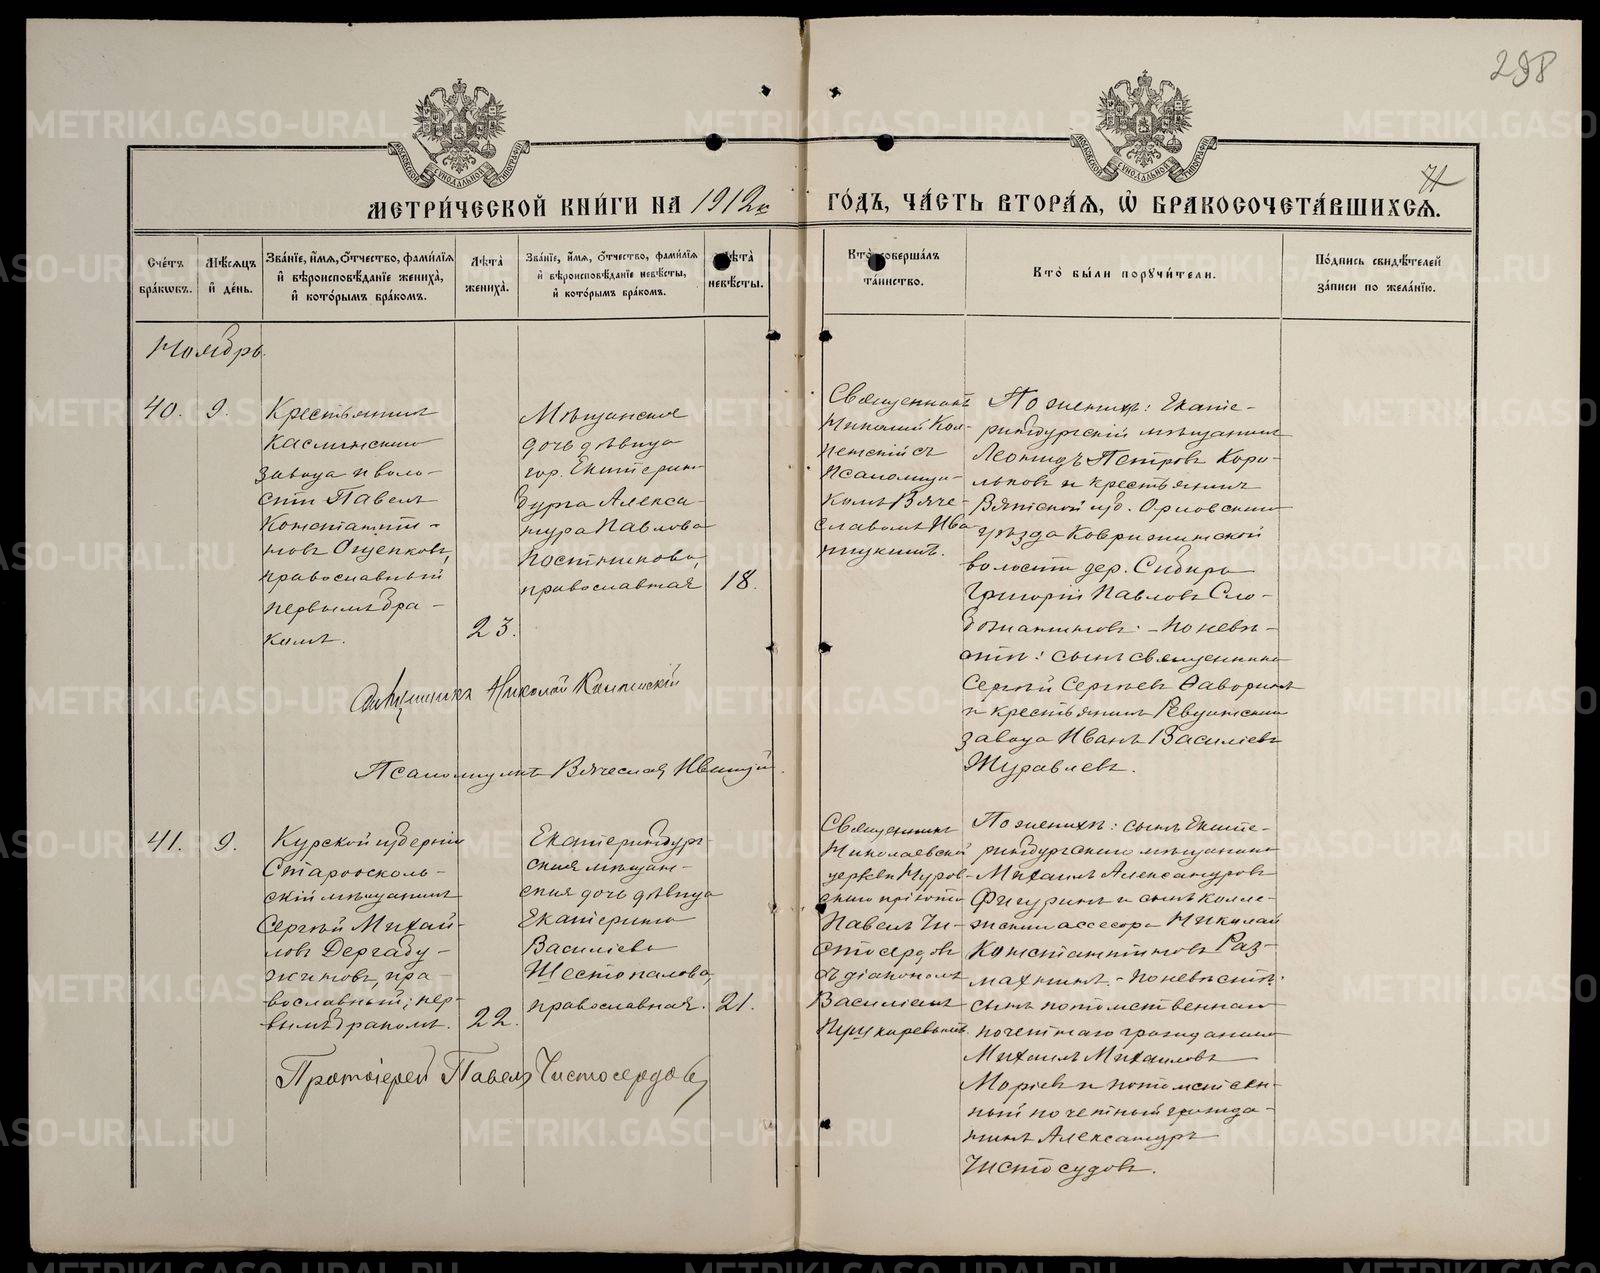 298
71
МЕТРИ́ЧЕСКОЙ КНИ́ГИ НА 1912й ГО́ДЪ, ЧА́СТЬ ВТОРА́Я, Ѽ БРАКОСОЧЕТА́ВШИХСЯ.
Сче́тъ
бра́кѡвъ.
Мѣ́сяцъ
и҆ де́нь.
Зва́нїе, и҆́мя, ѻ҆́тчество, фами́лїя
и҆ вѣроисповѣ́данїе жениха̀,
и҆ кото́рымъ бра́комъ.
Лѣ́та
жениха̀.
Зва́нїе, и҆́мя, ѻ҆́тчество, фами́лїя
и҆ вѣроисповѣ́данїе невѣ́сты,
и҆ кото́рымъ бра́комъ.
Лѣ́та
невѣ́сты.
Кто̀ соверша́лъ
та́инство.
Кто̀ бы́ли порꙋчи́тели.
По́дпись свидѣ́телей
за́писи по жела́нїю.
Ноябрь.
40.
9.
Крестьянинъ
Каслинскаго
завода и воло-
сти Павелъ
Константи-
новъ Ощепковъ,
православный
первымъ бра-
комъ.
23.
Мѣщанская
дочь дѣвица
гор. Екатерин-
бурга Алекса-
ндра Павлова
Постникова,
православная
18.
Священникъ
Николай Кол-
пенскій съ
Псаломщи-
комъ Вяче-
славомъ Ива-
ницкимъ.
По женихѣ: Екате-
ринбургскій мѣщанинъ
Леонидъ Петровъ Коро-
льковъ и крестьянинъ
Вятской губ. Орловскаго
уѣзда Коврижинской
волости дер. Сибири
Григорій Павловъ Сло-
божаниновъ. - По невѣ-
стѣ: сынъ священника
Сергѣй Сергѣевъ Ѳаворинъ
и крестьянинъ Ревдинскаго
завода Иванъ Василіевъ
Журавлевъ.
Священникъ Николай
Псаломщикъ Вячеслав
41.
9.
Курской губерніи
Староосколь-
скій мѣщанинъ
Сергѣй Михай-
ловъ Дергабу-
жиновъ, пра-
вославный, пер-
вымъ бракомъ.
22.
Екатеринбург
ская мѣщан-
ская дочь дѣвица
Екатерина
Василіева
Шестопалова,
православная.
21.
Священникъ
Николаевской
церкви Нуров-
скаго пріюта
Павелъ Чи-
стосердовъ
съ діакономъ
Василіемъ
Пушкаревымъ.
По женихѣ: сынъ Екате-
ринбургскаго мѣщанина
Михаилъ Александровъ
Фигуринъ и сынъ колле-
жскаго ассесора Николай
Константиновъ Раз-
махнинъ, - по невѣстѣ:
сынъ потомственнаго
почетнаго гражданина
Михаилъ Михаиловъ
и потомствен-
ный почетный гражда-
нинъ Александръ
Чистосудовъ.
Протоіерей Павелъ Чистосердовъ
METRIKI.GASO-URAL.RU